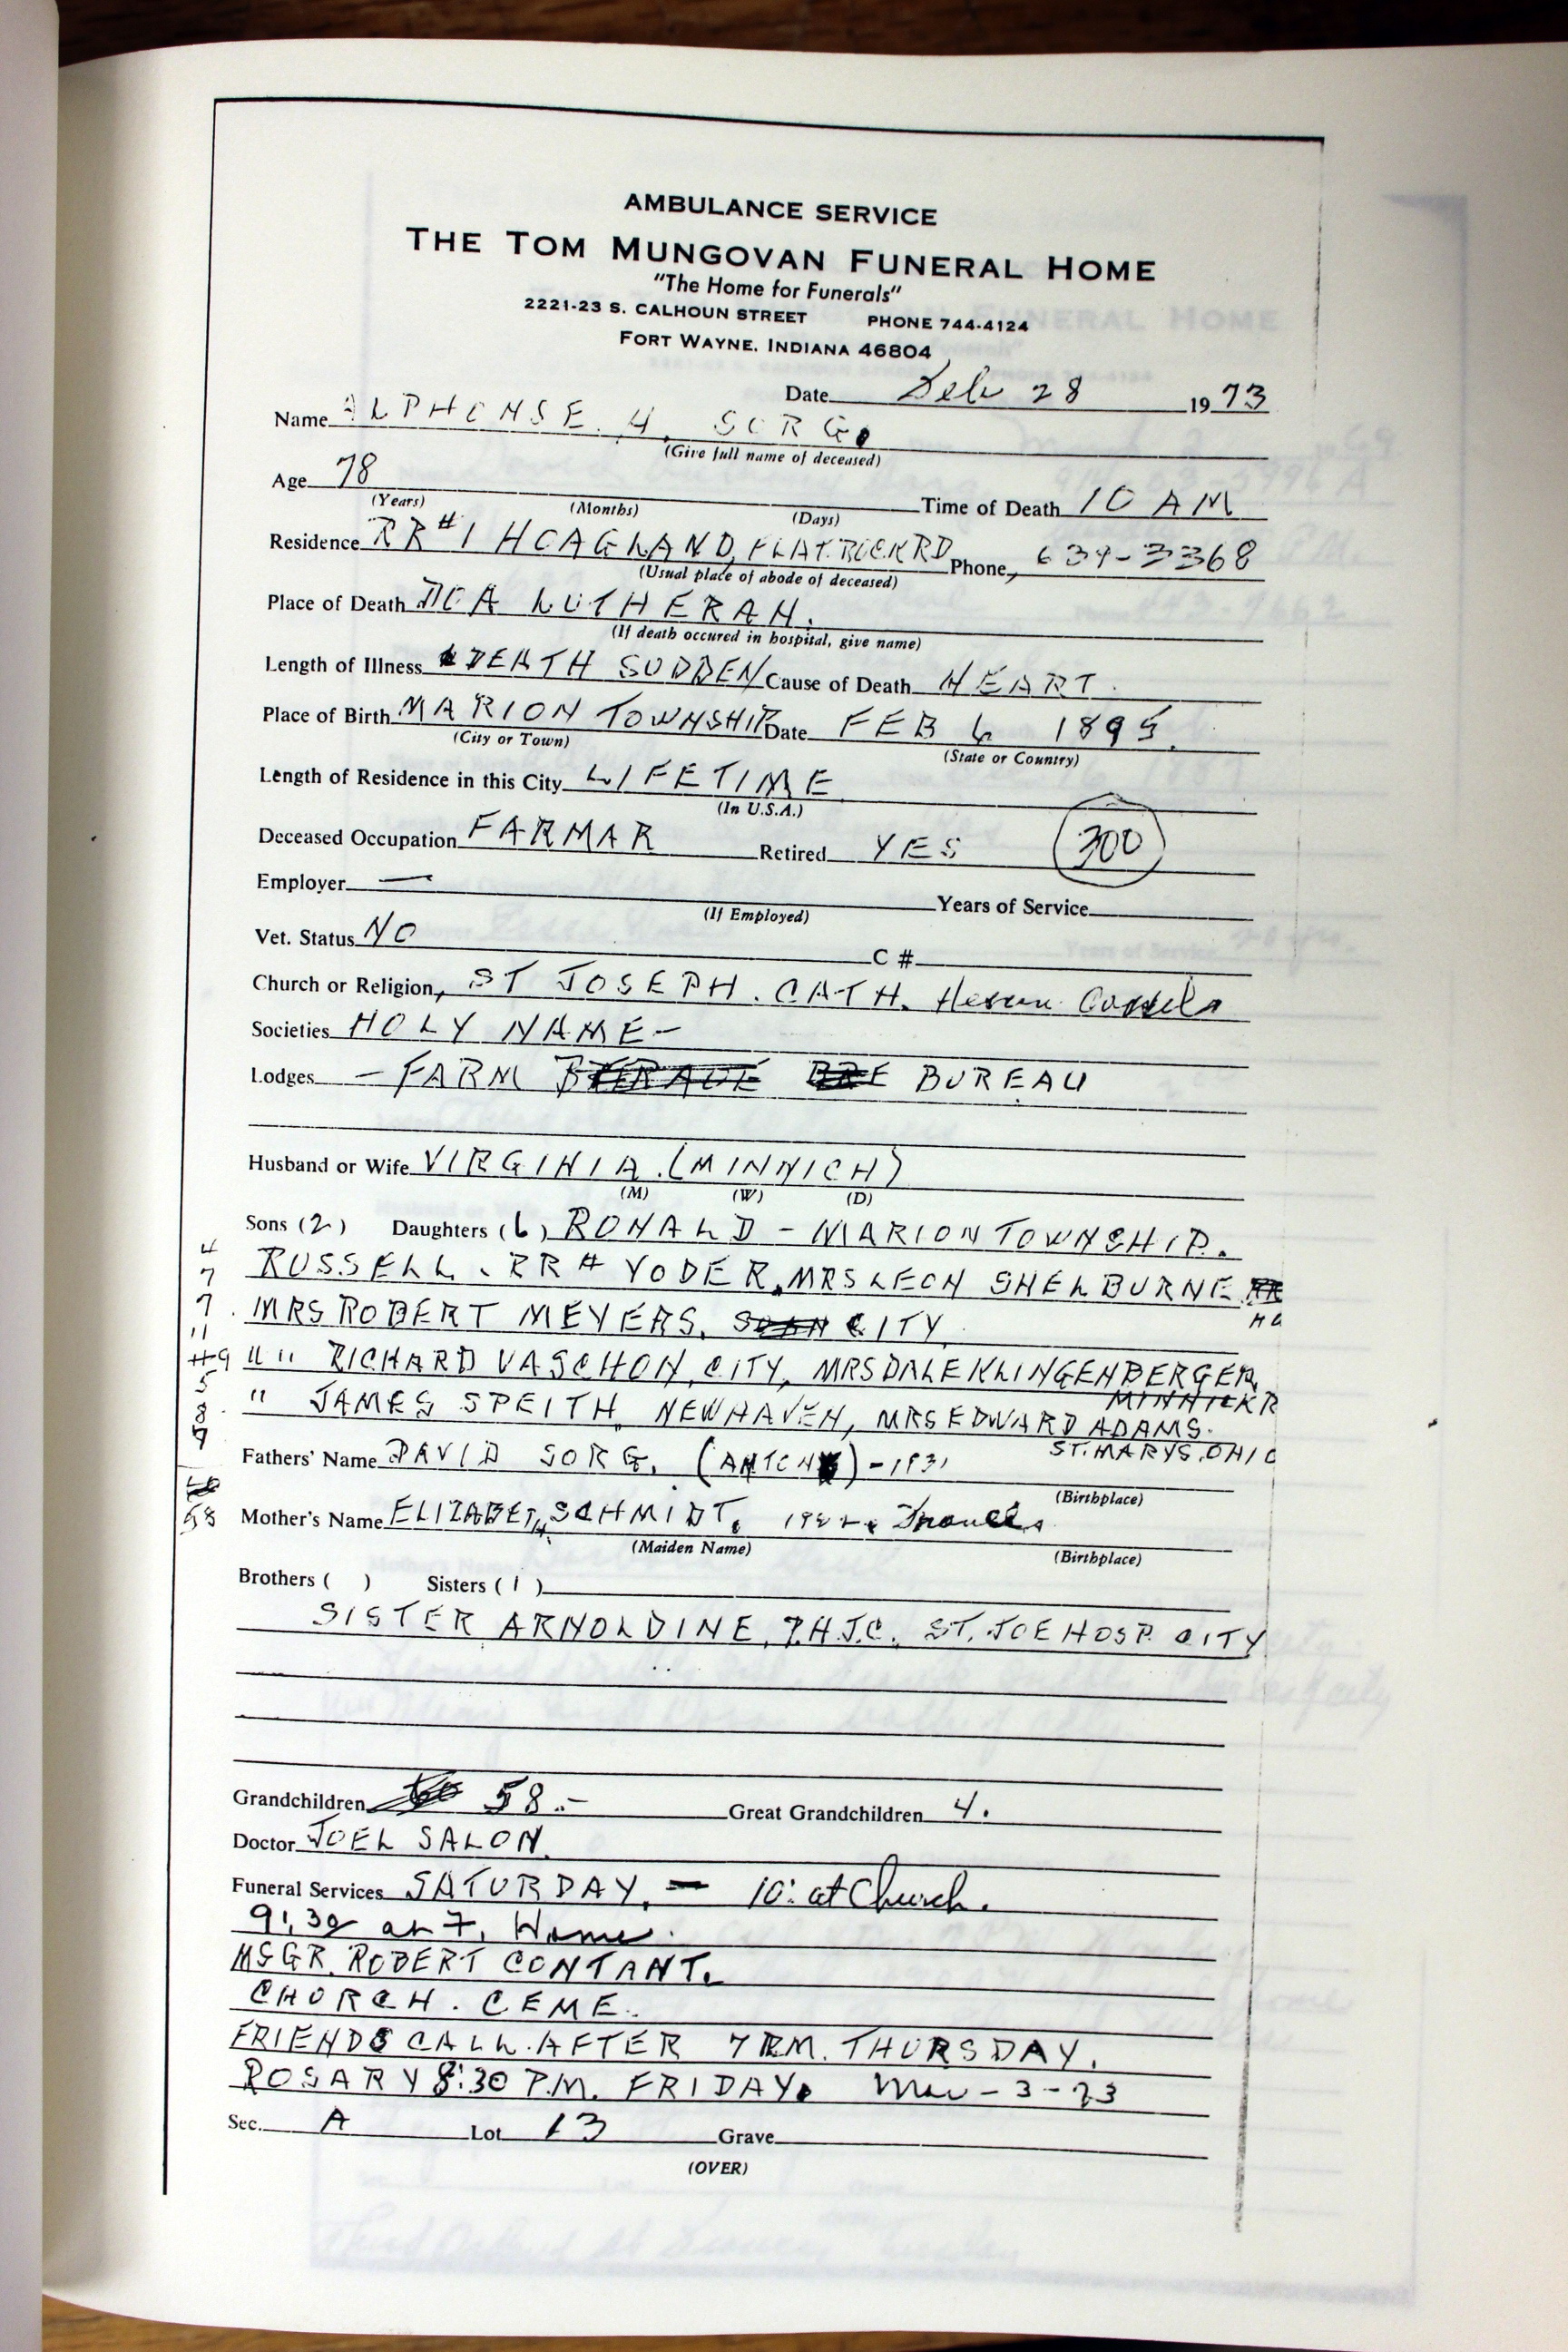 AMBULANCE SERVICE
THE TOM MUNGOVAN FUNERAL HOME
"The Home for Funerals"
2221-23 S. CALHOUN STREET PHONE 744-4124
FORT WAYNE, INDIANA 46804
Date Feb 28 1973
Name ALPHONSE H. SORG.
(Give full name of deceased)
Age 78 Time of Death 10 AM
(Years) (Months) (Days)
Residence RR#1 HOAGLAND, FLATROCK RD Phone, 639-3368
(Usual place of abode of deceased)
Place of Death DOA LUTHERAN.
(If death occured in hospital, give name)
Length of Illness DEATH SUDDEN Cause of Death HEART.
Place of Birth MARION TOWNSHIP Date FEB 6 1895.
(City or Town) (State or Country)
Length of Residence in this City LIFETIME
(In U.S.A.)
Deceased Occupation FARMAR Retired YES 300
Employer — Years of Service
(If Employed)
Vet. Status NO C #
Church or Religion, ST JOSEPH. CATH. Hessen Cassel
Societies HOLY NAME-
Lodges - FARM BUREAU
Husband or Wife VIRGINIA. (MINNICH)
(M) (W) (D)
Sons (2) Daughters (6) RONALD - MARION TOWNSHIP.
4
RUSSELL. RR# YODER, MRS LEON SHELBURNE
7
MRS ROBERT MEYERS, CITY
7
11
"" RICHARD VASCHON, CITY, MRS DALE KLINGENBERGER,
9
5
" JAMES SPEITH, NEWHAVEN, MRS EDWARD ADAMS.
8
ST. MARYS, OHIO
Fathers' Name DAVID SORG. (ANTON) - 1931
(Birthplace)
58
Mother's Name ELIZABETH SCHMIDT.
(Maiden Name) (Birthplace)
Brothers ( ) Sisters (1)
SISTER ARNOLDINE, P.H.J.C. ST. JOE HOSP. CITY
Grandchildren 58.- Great Grandchildren 4.
Doctor JOEL SALON.
Funeral Services SATURDAY. - 10: at Church.
9:30 at F. Home.
MSGR. ROBERT CONTANT.
CHURCH. CEME.
FRIENDS CALL. AFTER 7 P.M. THURSDAY.
ROSARY 8:30 P.M. FRIDAY. Mar-3-73
Sec. A Lot 13 Grave
(OVER)